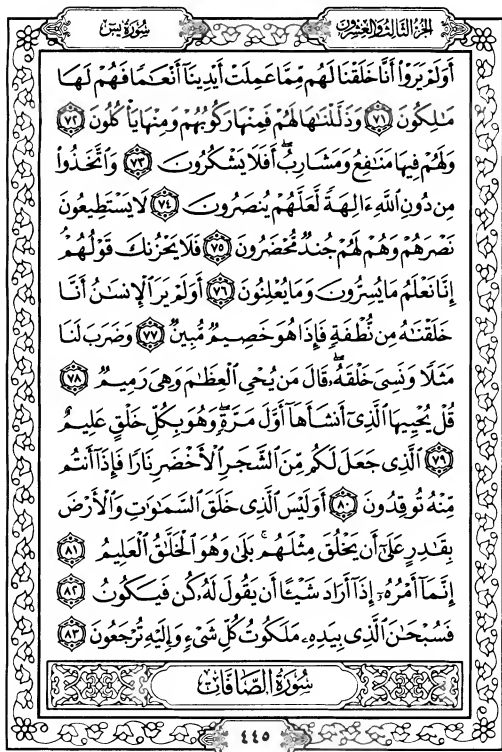 الجزء الثالث والعشرون
سورة يس
أَوَلَمْ يَرَوْا۟ أَنَّا خَلَقْنَا لَهُم مِّمَّا عَمِلَتْ أَيْدِينَآ أَنْعَٰمًا فَهُمْ لَهَا
مَٰلِكُونَ ٧١ وَذَلَّلْنَٰهَا لَهُمْ فَمِنْهَا رَكُوبُهُمْ وَمِنْهَا يَأْكُلُونَ ٧٢
وَلَهُمْ فِيهَا مَنَٰفِعُ وَمَشَارِبُۖ أَفَلَا يَشْكُرُونَ ٧٣ وَٱتَّخَذُوا۟
مِن دُونِ ٱللَّهِ ءَالِهَةً لَّعَلَّهُمْ يُنصَرُونَ ٧٤ لَا يَسْتَطِيعُونَ
نَصْرَهُمْ وَهُمْ لَهُمْ جُندٌ مُّحْضَرُونَ ٧٥ فَلَا يَحْزُنكَ قَوْلُهُمْ
إِنَّا نَعْلَمُ مَا يُسِرُّونَ وَمَا يُعْلِنُونَ ٧٦ أَوَلَمْ يَرَ ٱلْإِنسَٰنُ أَنَّا
خَلَقْنَٰهُ مِن نُّطْفَةٍ فَإِذَا هُوَ خَصِيمٌ مُّبِينٌ ٧٧ وَضَرَبَ لَنَا
مَثَلًا وَنَسِىَ خَلْقَهُۥۖ قَالَ مَن يُحْىِ ٱلْعِظَٰمَ وَهِىَ رَمِيمٌ ٧٨
قُلْ يُحْيِيهَا ٱلَّذِىٓ أَنشَأَهَآ أَوَّلَ مَرَّةٍۖ وَهُوَ بِكُلِّ خَلْقٍ عَلِيمٌ
٧٩ ٱلَّذِى جَعَلَ لَكُم مِّنَ ٱلشَّجَرِ ٱلْأَخْضَرِ نَارًا فَإِذَآ أَنتُم
مِّنْهُ تُوقِدُونَ ٨٠ أَوَلَيْسَ ٱلَّذِى خَلَقَ ٱلسَّمَٰوَٰتِ وَٱلْأَرْضَ
بِقَٰدِرٍ عَلَىٰٓ أَن يَخْلُقَ مِثْلَهُمۚ بَلَىٰ وَهُوَ ٱلْخَلَّٰقُ ٱلْعَلِيمُ ٨١
إِنَّمَآ أَمْرُهُۥٓ إِذَآ أَرَادَ شَيْـًٔا أَن يَقُولَ لَهُۥ كُن فَيَكُونُ ٨٢
فَسُبْحَٰنَ ٱلَّذِى بِيَدِهِۦ مَلَكُوتُ كُلِّ شَىْءٍ وَإِلَيْهِ تُرْجَعُونَ ٨٣
سُورَةُ الصَّافَّاتِ
٤٤٥